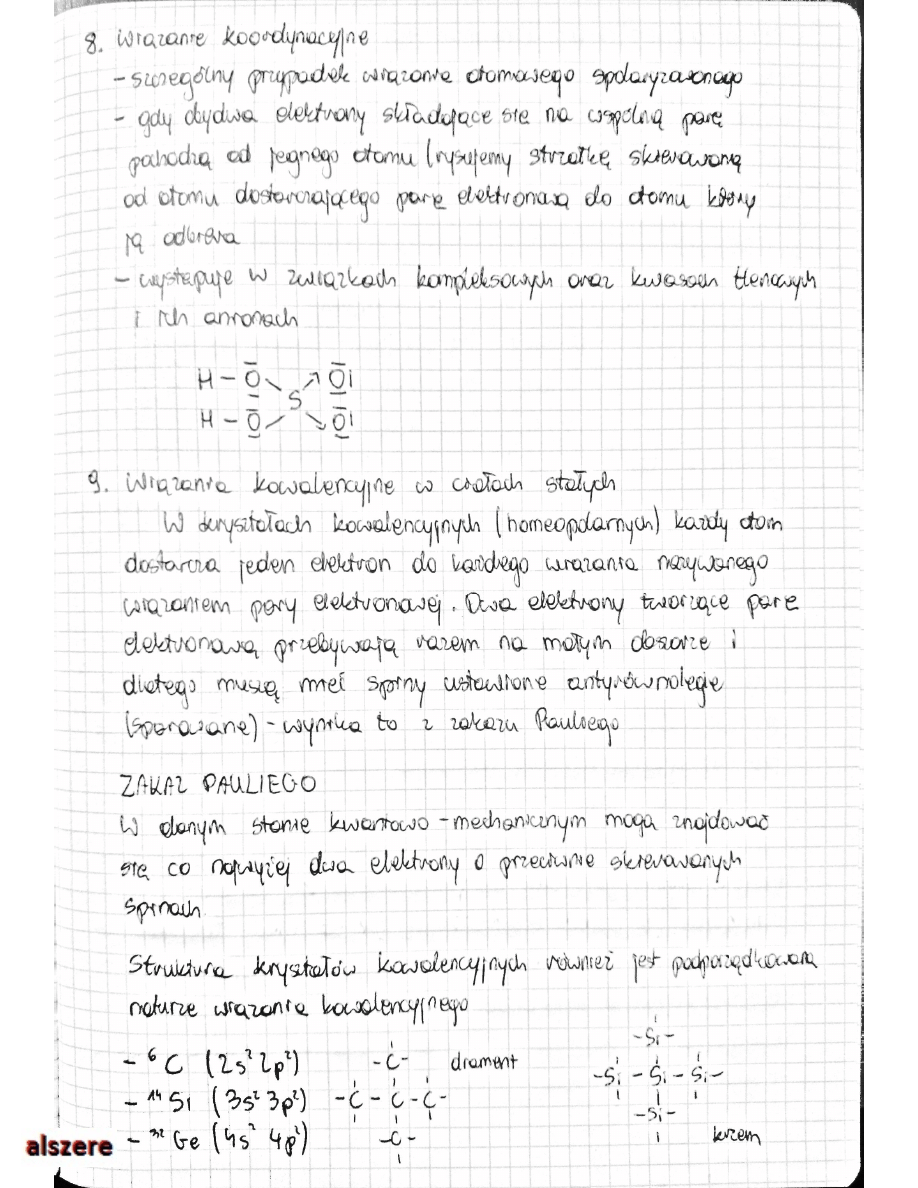 8. Wiązanie koordynacyjne
- szczególny przypadek wiązania atomowego spolaryzowanego
- gdy obydwa elektrony składające się na wspólną parę
pochodzą od jegnego atomu (rysujemy strzałkę skierowaną
od atomu dostarczającego parę elektronową do atomu który
ją odbiera
- występuje w związkach kompleksowych oraz kwasach tlenowych
i ich anionach
H - O O
S
H - O O
9. Wiązania kowalencyjne w ciałach stałych
W kryształach kowalencyjnych (homeopolarnych) każdy atom
dostarcza jeden elektron do każdego wiązania nazywanego
wiązaniem pary elektronowej. Dwa elektrony tworzące parę
elektronową przebywają razem na małym obszarze i
dlatego muszą mieć spiny ustawione antyrównolegle
(sparowane) - wynika to z zakazu Pauliego
ZAKAZ PAULIEGO
W danym stanie kwantowo - mechanicznym mogą znajdować
się co najwyżej dwa elektrony o przeciwnie skierowanych
spinach
Struktura kryształów kowalencyjnych również jest podporządkowana
naturze wiązania kowalencyjnego
- ⁶C (2s² 2p²) - C - diament - Si -
- ¹⁴Si (3s² 3p²) - C - C - C - - Si - Si - Si -
- ³²Ge (4s² 4p²) - C - - Si - krzem
alszere